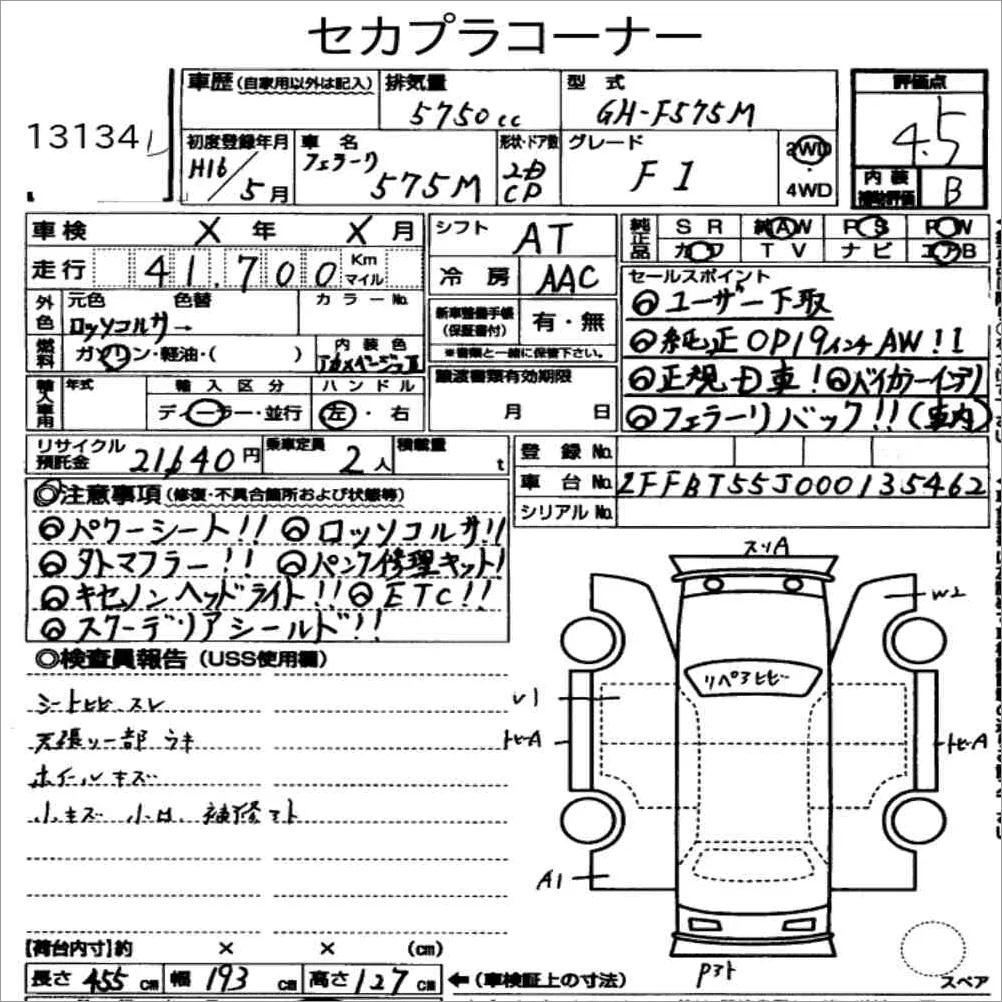 セカプラコーナー
13134
車歴(自家用以外は記入) 排気量 5750cc 型式 GH-F575M 評価点 4.5
初度登録年月 H16/5月 車名 フェラーリ 575M 形状・ドア数 2D CP グレード F1 2WD 4WD 内装補助評価 B
車検 X年 X月 シフト AT 純正品 SR 純AW PS PW
走行 41,700 Km マイル 冷房 AAC カワ TV ナビ エアB
外色 元色 ロッソコルサ→ 色替 カラーNo. 新車整備手帳(保証書付) 有・無 ※書類と一緒に保管下さい。
燃料 ガソリン・軽油・( ) 内装色
輸入車用 年式 輸入区分 ディーラー・並行 ハンドル 左・右 譲渡書類有効期限 月 日
セールスポイント
◎ユーザー下取
◎純正OP19インチAW!!
◎正規D車! ◎バイカラーインテリ
◎フェラーリバック!!(車内)
リサイクル預託金 21640円 乗車定員 2人 積載量 t
登録No.
車台No. ZFFBT55J000135462
シリアルNo.
◎注意事項(修復・不具合箇所および状態等)
◎パワーシート!! ◎ロッソコルサ!!
◎タトマフラー!! ◎パンク修理キット!
◎キセノンヘッドライト!! ◎ETC!!
◎スクーデリアシールド!!
◎検査員報告(USS使用欄)
シートヒビ スレ
天張り一部ウキ
ホイールキズ
小キズ 小凹 補修アト
スリA
W2
リペアヒビ
U1
トビA
トビA
A1
Pアト
スペア
【荷台内寸】約 × × (cm)
長さ 455cm 幅 193cm 高さ 127cm ←(車検証上の寸法)